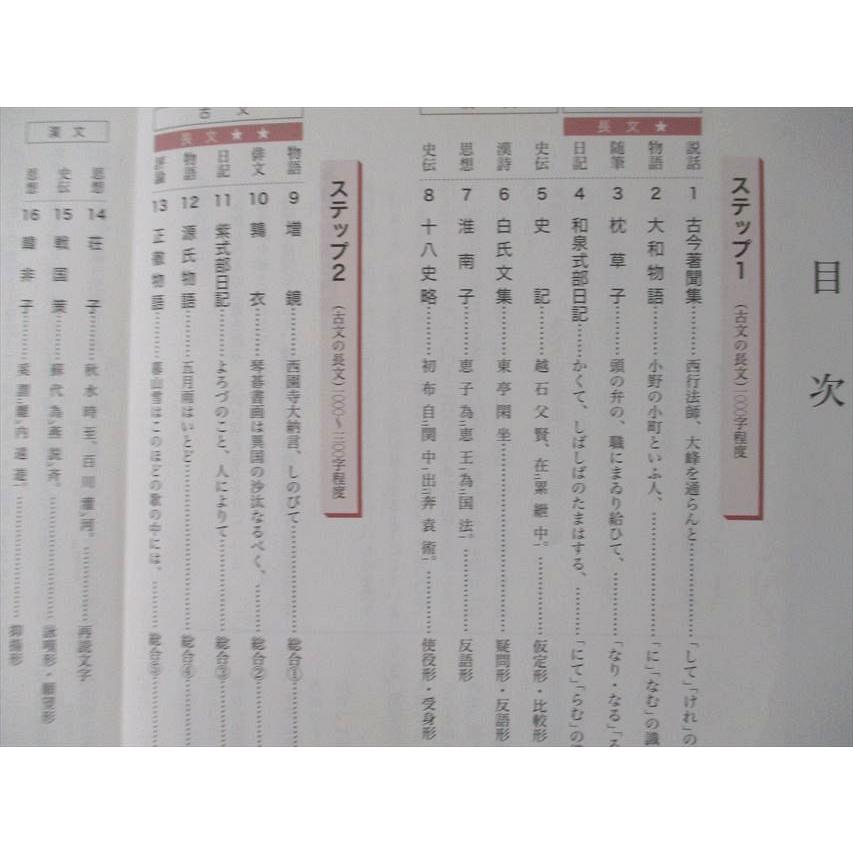 目次
ステップ1 (古文の長文)二〇〇字程度
長文★
説話 1 古今著聞集………西行法師、大峰を通らんと………「して」「けれ」の
物語 2 大和物語………小野の小町といふ人、………「に」「なむ」の識
随筆 3 枕草子………頭の弁の、職にまゐり給ひて、………「なり・なる」「る
日記 4 和泉式部日記………かくて、しばしばのたまはする、………「にて」「らむ」の
史伝 5 史記………越石父賢、在累継中。………仮定形・比較形
漢詩 6 白氏文集………東亭閑坐………疑問形・反語形
思想 7 淮南子………恵子為恵王為国法。………反語形
史伝 8 十八史略………初布自関中出奔袁術。………使役形・受身形
ステップ2 (古文の長文)二〇〇〜三〇〇字程度
古文
長文★★
物語 9 増鏡………西園寺大納言、しのびて………総合①
俳文 10 鶉衣………琴碁書画は異国の沙汰なるべく、………総合②
日記 11 紫式部日記………よろづのこと、人によりて………総合③
物語 12 源氏物語………五月雨はいとど………総合④
評論 13 正徹物語………暮山雪はこのほどの歌の中には、………総合⑤
漢文
思想 14 荘子………秋水時至、百川灌河。………再読文字
史伝 15 戦国策………蘇代為燕説斉。………詠嘆形・願望形
思想 16 韓非子………抑揚形